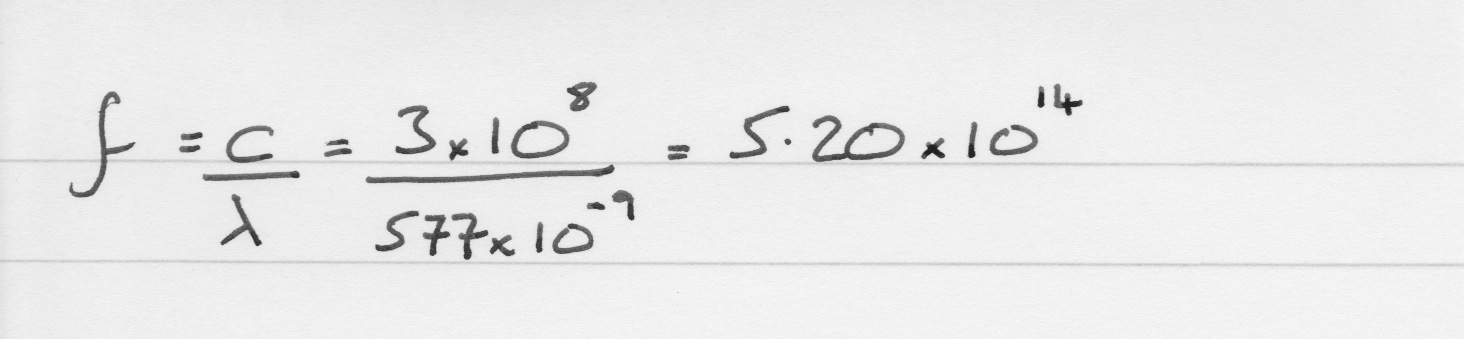 f = c/λ = 3×10⁸/577×10⁻⁹ = 5.20×10¹⁴